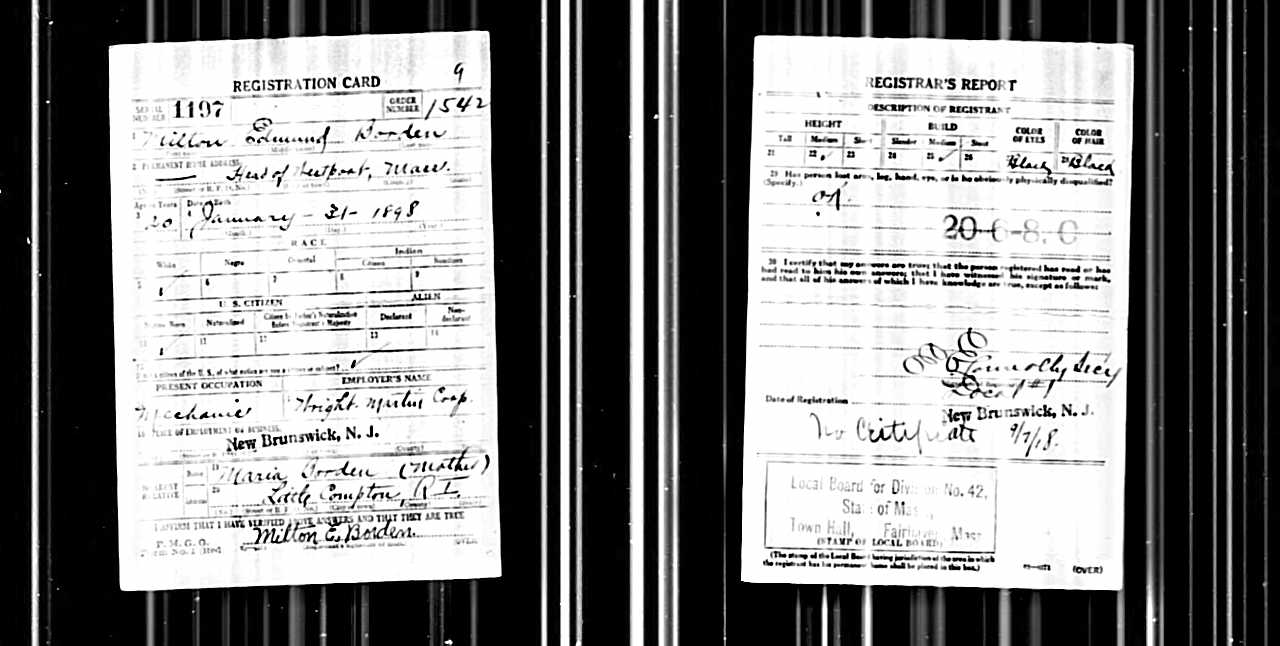 9
REGISTRATION CARD
SERIAL NUMBER 1197 ORDER NUMBER 1542
1 Milton Edmund Borden
2 PERMANENT HOME ADDRESS
Head of Westport, Mass.
Age in Years Date of Birth
3 20 4 January - 31 - 1898
RACE
White Negro Oriental Indian
Citizen Noncitizen
5 6 7 8 9
U. S. CITIZEN ALIEN
Native Born Naturalized Citizen by Father's Naturalization Before Registrant's Majority Declarant Non-declarant
10 11 12 13 14
15 If not a citizen of the U. S., of what nation are you a citizen or subject?
PRESENT OCCUPATION EMPLOYER'S NAME
Mechanic Wright Martin Corp.
18 PLACE OF EMPLOYMENT OR BUSINESS
New Brunswick, N. J.
NEAREST RELATIVE Name 19 Maria Borden (Mother)
Address 20 Little Compton, R. I.
I AFFIRM THAT I HAVE VERIFIED ABOVE ANSWERS AND THAT THEY ARE TRUE
P. M. G. O.
Form No. 1 (Red) Milton E. Borden (OVER)
REGISTRAR'S REPORT
DESCRIPTION OF REGISTRANT
HEIGHT BUILD COLOR OF EYES COLOR OF HAIR
Tall Medium Short Slender Medium Stout
21 22 ✓ 23 24 25 ✓ 26 Black 28 Black
29 Has person lost arm, leg, hand, eye, or is he obviously physically disqualified?
(Specify.)
OK.
20-6-8. C
30 I certify that my answers are true; that the person registered has read or has
had read to him his own answers; that I have witnessed his signature or mark,
and that all of his answers of which I have knowledge are true, except as follows:
Connolly Secy
Local #1
Date of Registration
New Brunswick, N. J.
No Certificate 9/7/18.
Local Board for Division No. 42,
State of Mass.,
Town Hall, Fairhaven, Mass.
(STAMP OF LOCAL BOARD)
(The stamp of the Local Board having jurisdiction of the area in which
the registrant has his permanent home shall be placed in this box.)
(OVER)